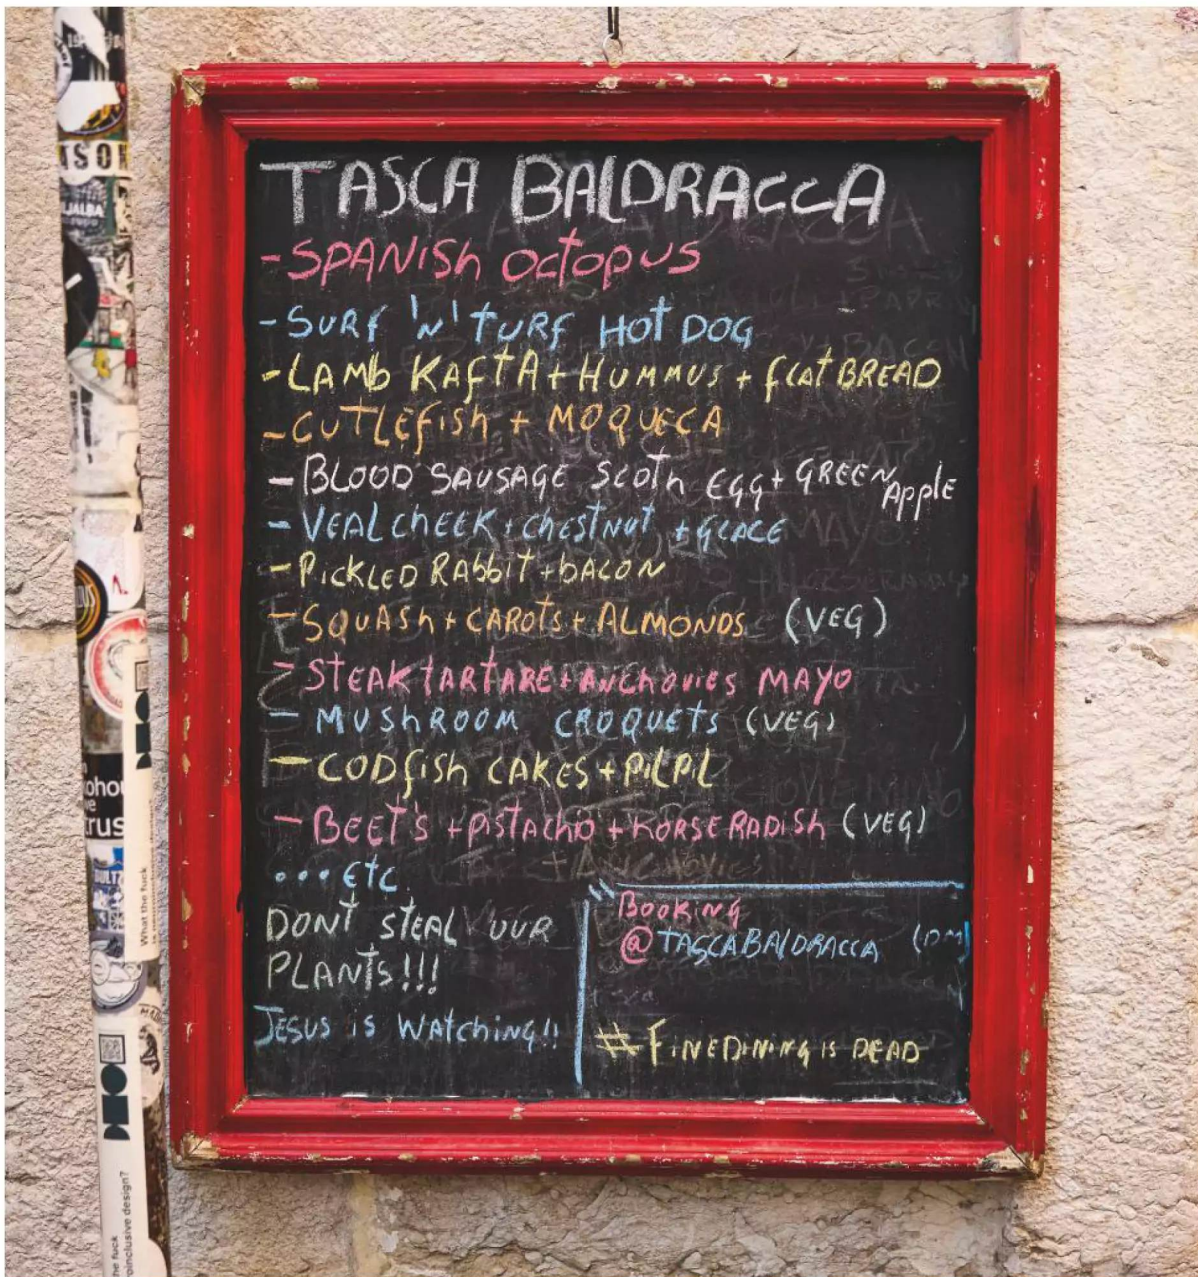 TASCA BALDRACCA
- SPANISH OCTOPUS
- SURF 'N' TURF HOT DOG
- LAMB KAFTA + HUMMUS + FLAT BREAD
- CUTLEFISH + MOQUECA
- BLOOD SAUSAGE SCOTH EGG + GREEN APPLE
- VEAL CHEEK + CHESTNUT + GLACE
- PICKLED RABBIT + BACON
- SQUASH + CAROTS + ALMONDS (VEG)
- STEAK TARTARE + ANCHOVIES MAYO
- MUSHROOM CROQUETS (VEG)
- CODFISH CAKES + PILPIL
- BEET'S + PISTACHO + HORSERADISH (VEG)
... ETC.
DONT STEAL OUR
PLANTS!!!
JESUS IS WATCHING!!
BOOKING
@TASCABALDRACCA (DM)
# FINEDINING IS DEAD
What the fuck